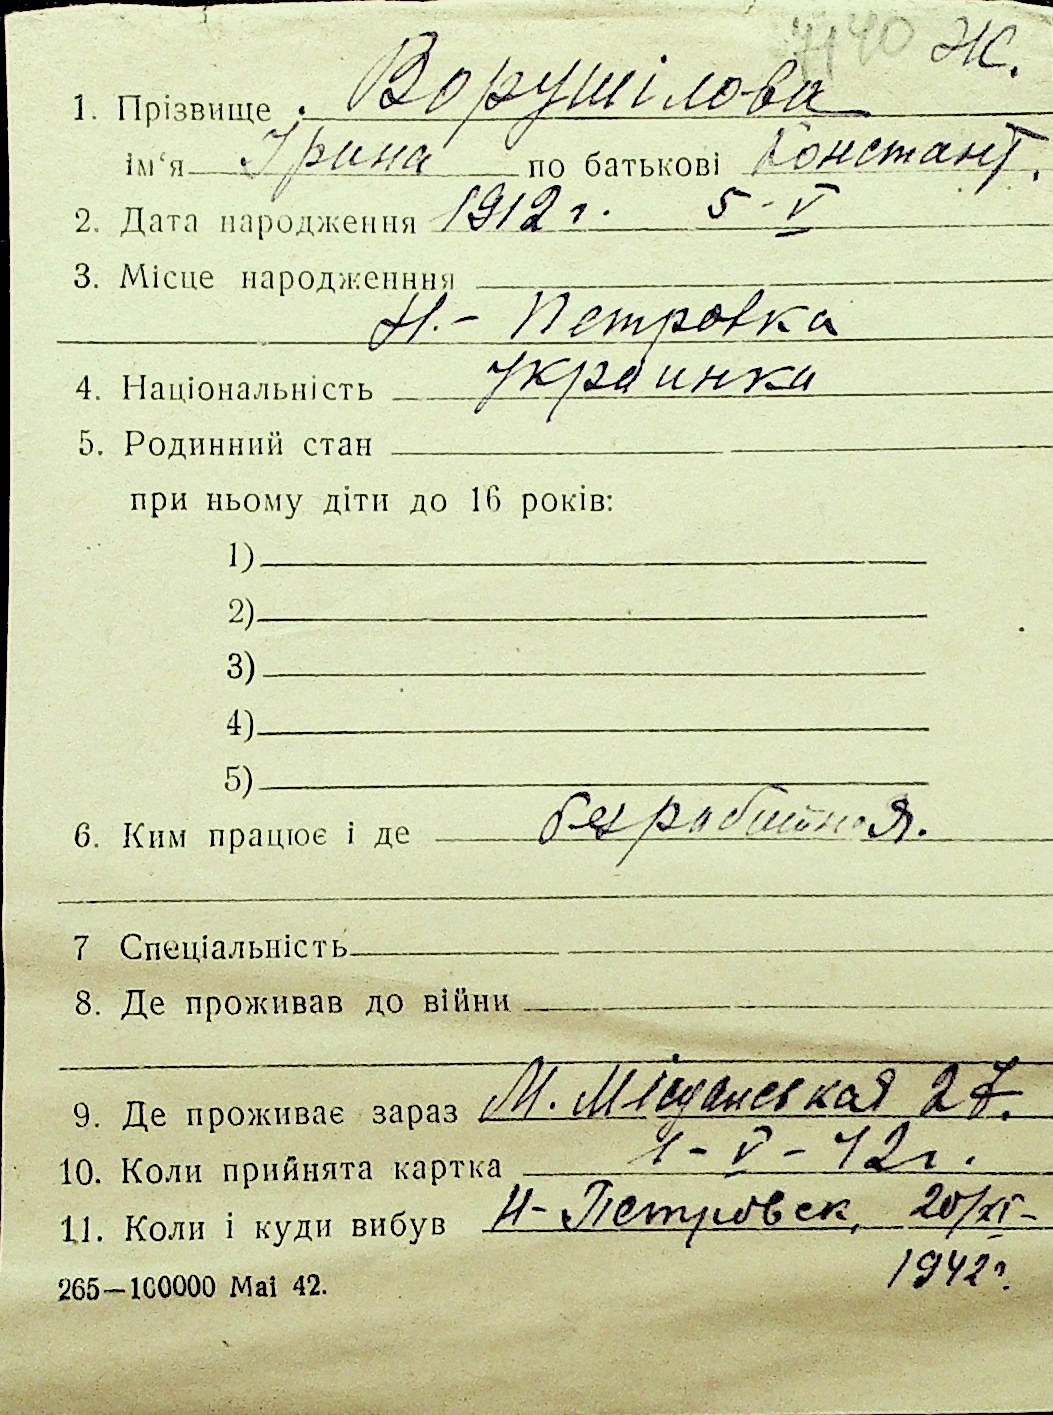 7140 Ж.
1. Прізвище Ворушілова
ім'я Ірина по батькові Констант.
2. Дата народження 1912 г. 5-V
3. Місце народженння
Н.- Петровка
4. Національність украинка
5. Родинний стан
при ньому діти до 16 років:
1)
2)
3)
4)
5)
6. Ким працює і де безработная.
7 Спеціальність
8. Де проживав до війни
9. Де проживає зараз М. 27.
10. Коли прийнята картка 1-V-42г.
11. Коли і куди вибув Н-Петровск, 20/XI-
1942г.
265—100000 Маі 42.